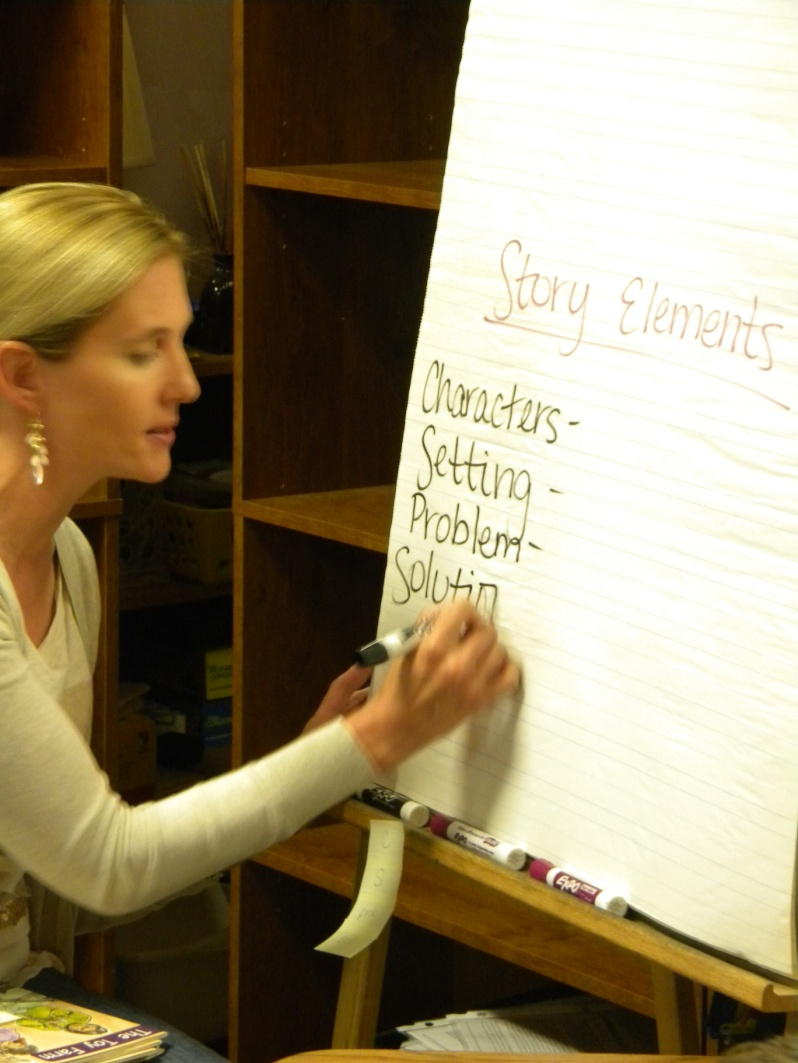 Story Elements
Characters-
Setting -
Problem-
Solution
EXPO
The Toy Farm